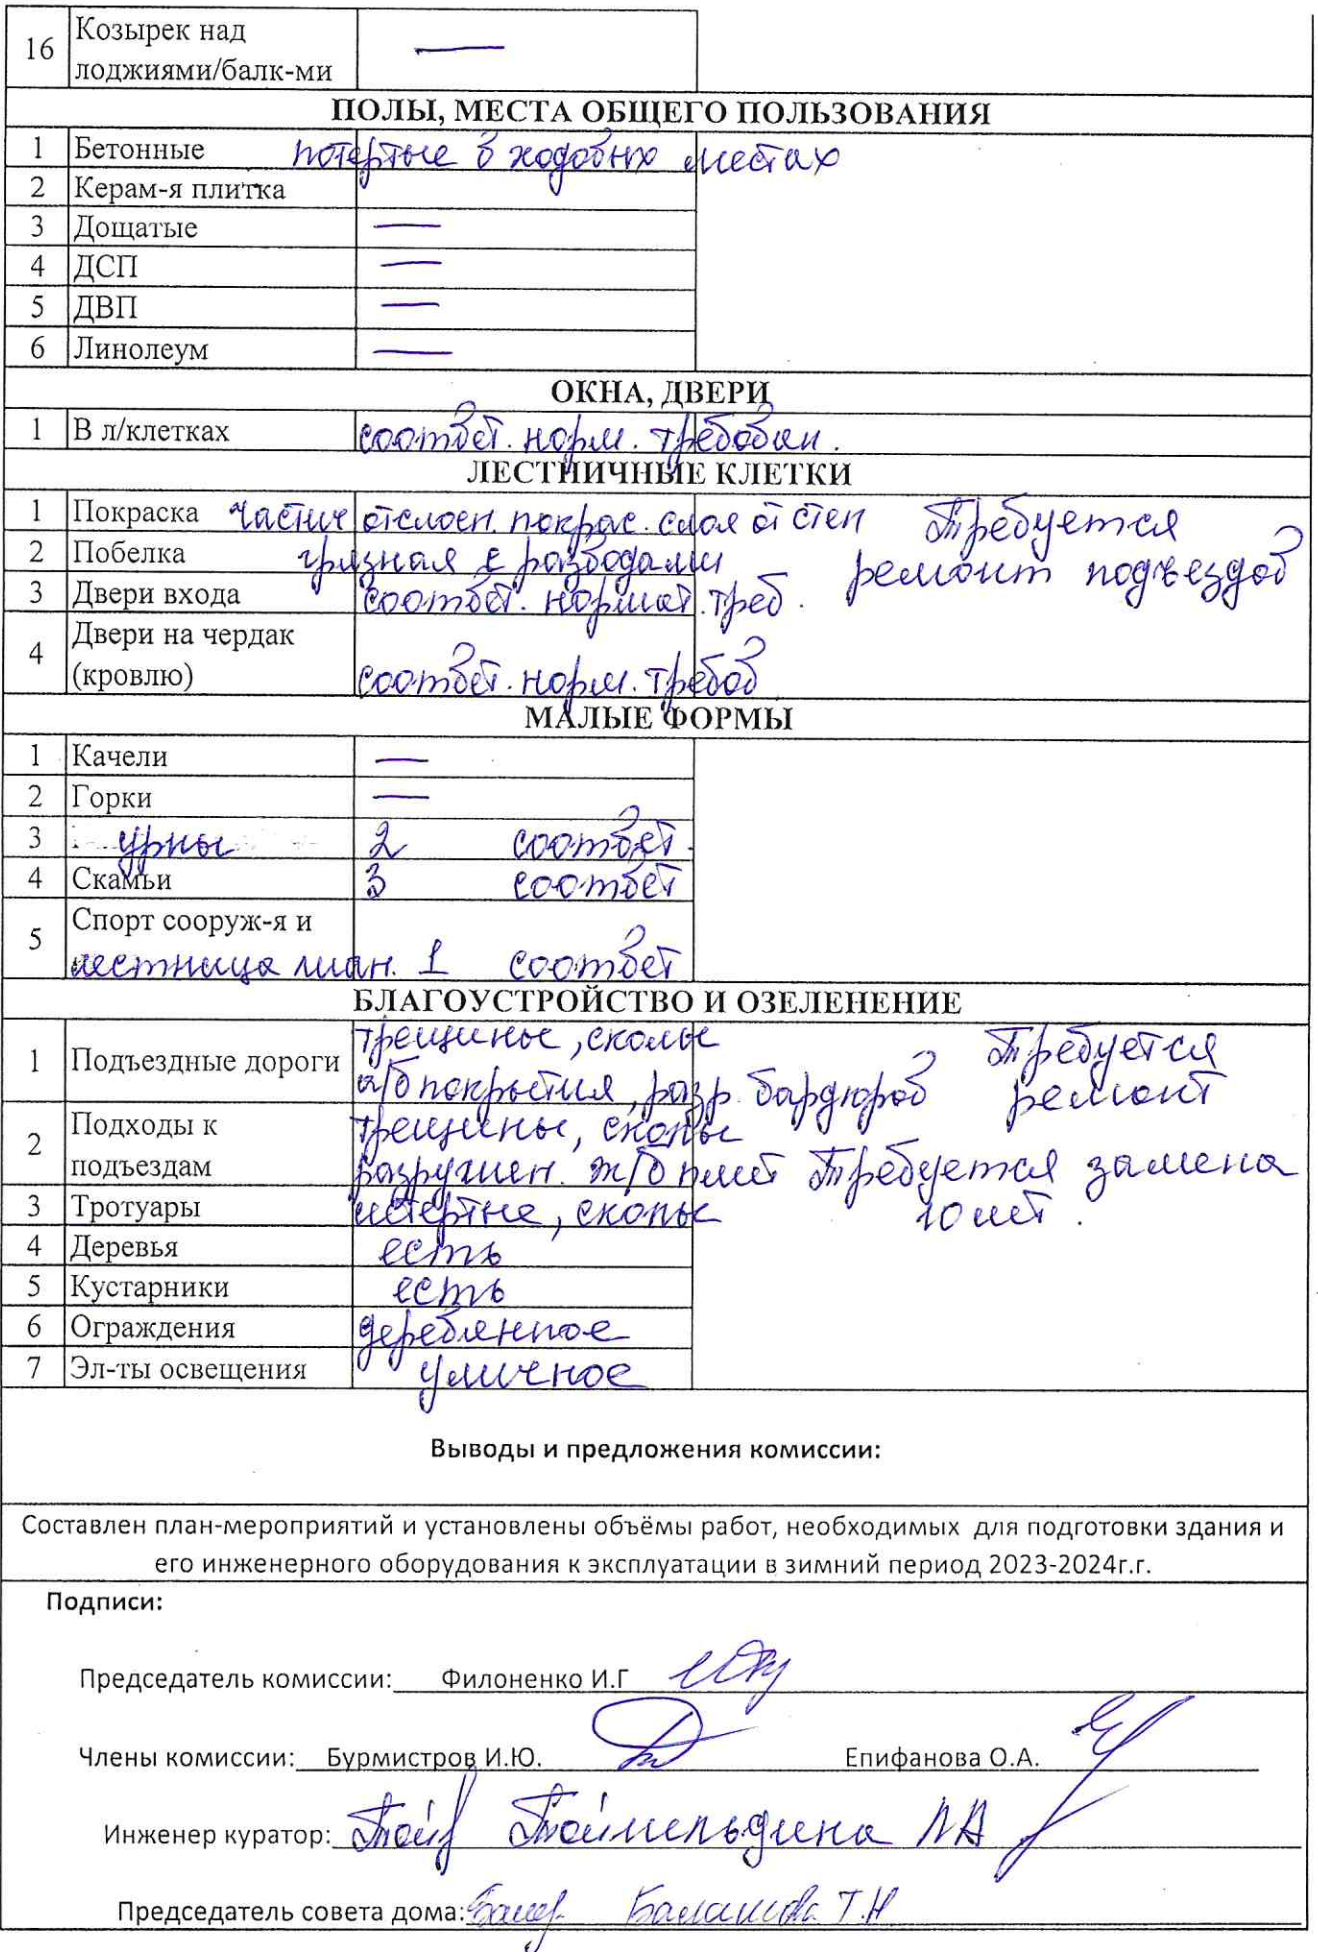 16 Козырек над
лоджиями/балк-ми —
ПОЛЫ, МЕСТА ОБЩЕГО ПОЛЬЗОВАНИЯ
1 Бетонные потертые в ходовых местах
2 Керам-я плитка
3 Дощатые —
4 ДСП —
5 ДВП —
6 Линолеум —
ОКНА, ДВЕРИ
1 В л/клетках соответ. норм. требован.
ЛЕСТНИЧНЫЕ КЛЕТКИ
1 Покраска частич отслоен. покрас. слоя от стен Требуется
2 Побелка грязная с разводами ремонт подъездов
3 Двери входа соответ. нормат. треб.
Двери на чердак
4 (кровлю) соответ. норм. требов
МАЛЫЕ ФОРМЫ
1 Качели —
2 Горки —
3 урны 2 соответ.
4 Скамьи 3 соответ
5 Спорт сооруж-я и
лестница лиан. 1 соответ
БЛАГОУСТРОЙСТВО И ОЗЕЛЕНЕНИЕ
1 Подъездные дороги трещины, сколы Требуется
а/б покрытия, разр. бардюров ремонт
2 Подходы к трещины, сколы
подъездам разрушен. ж/б плит Требуется замена
3 Тротуары истертые, сколы 10 шт.
4 Деревья есть
5 Кустарники есть
6 Ограждения деревянное
7 Эл-ты освещения уличное
Выводы и предложения комиссии:
Составлен план-мероприятий и установлены объёмы работ, необходимых для подготовки здания и
его инженерного оборудования к эксплуатации в зимний период 2023-2024г.г.
Подписи:
Председатель комиссии: Филоненко И.Г
Члены комиссии: Бурмистров И.Ю. Епифанова О.А.
Инженер куратор: Тойmельдина ЛА
Председатель совета дома: Балашова Т.Н